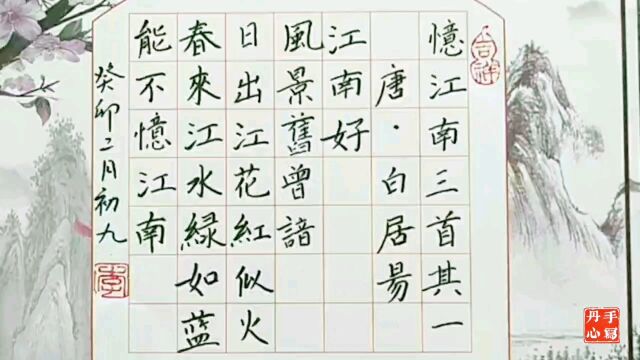 憶江南三首其一
唐·白居易
江南好
風景舊曾諳
日出江花紅似火
春來江水綠如蓝
能不憶江南
癸卯二月初九
李
手寫
丹心